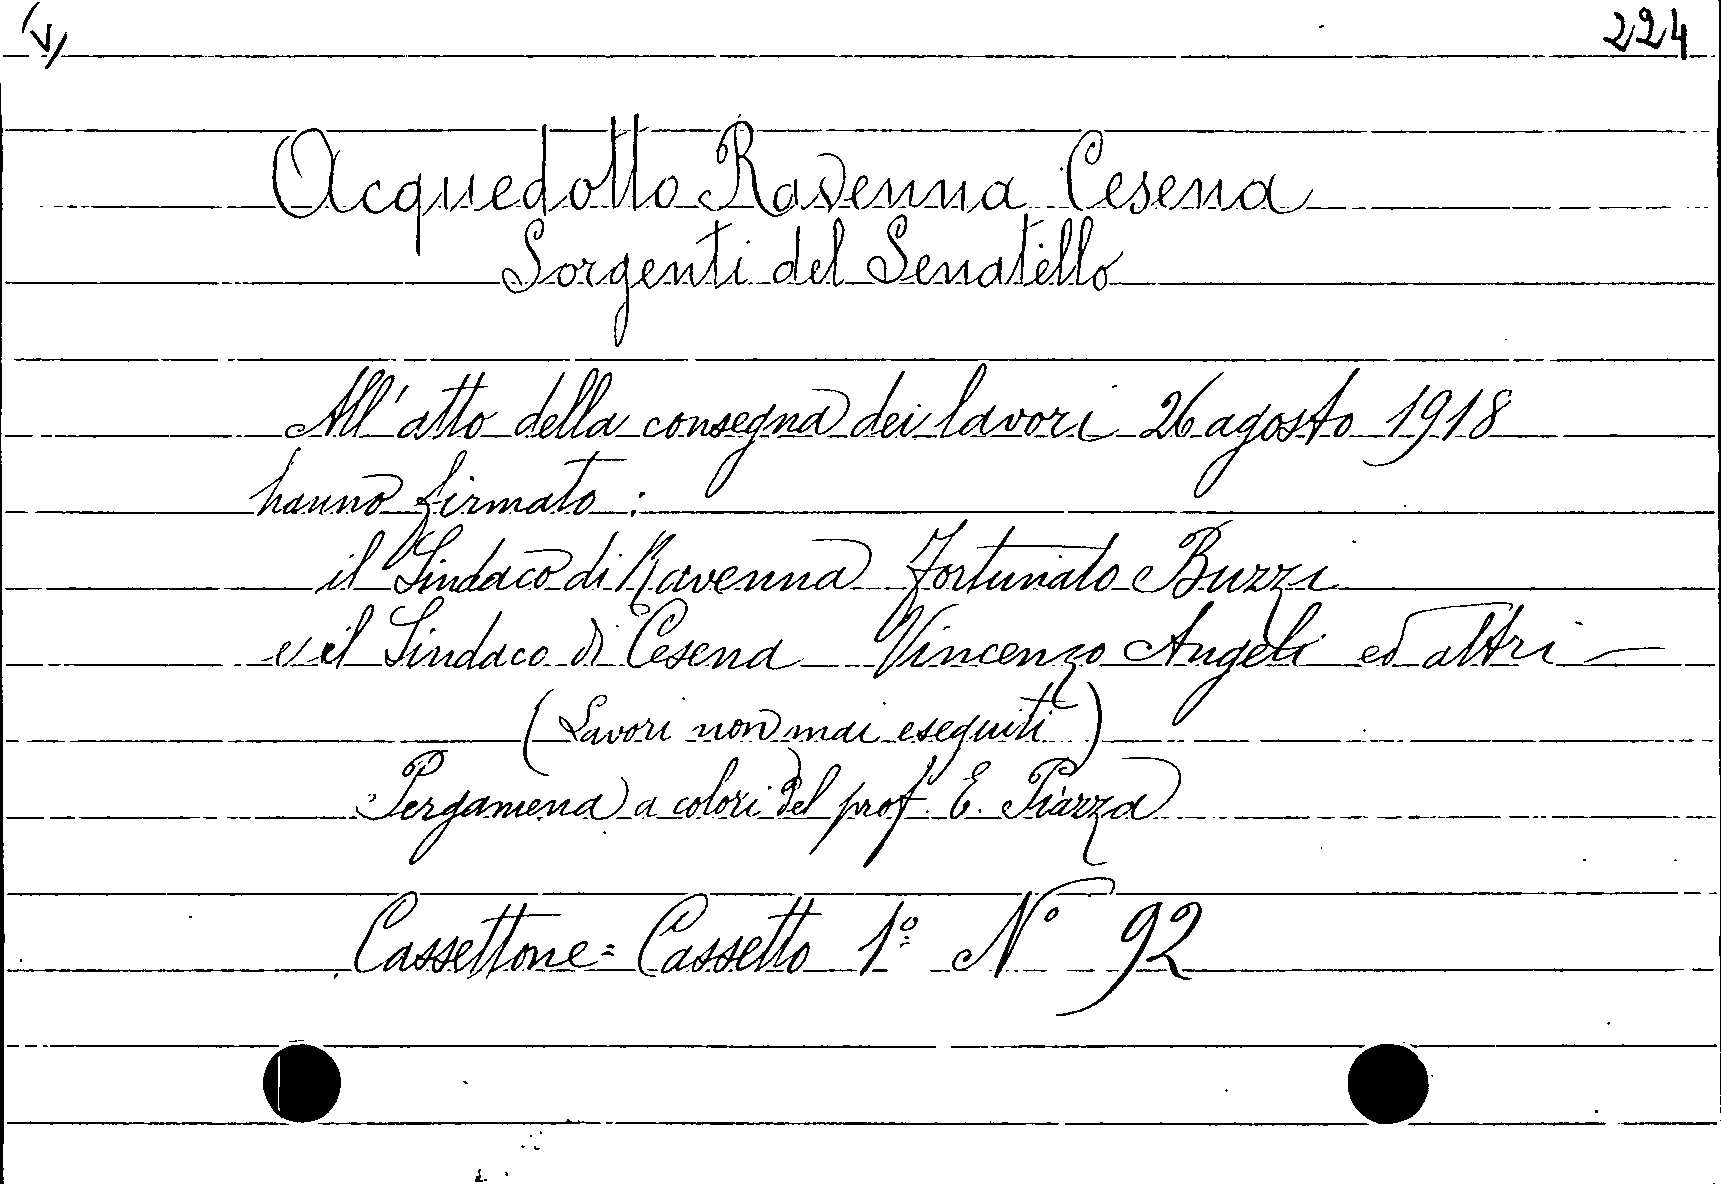 (V) 224
Acquedotto Ravenna Cesena
Sorgenti del Senatello
All'atto della consegna dei lavori 26 agosto 1918
hanno firmato :
il Sindaco di Ravenna Fortunato Buzzi
e il Sindaco di Cesena Vincenzo Angeli ed altri —
(Lavori non mai eseguiti)
Pergamena a colori del prof. E. Piazza
Cassettone = Cassetto 1º Nº 92